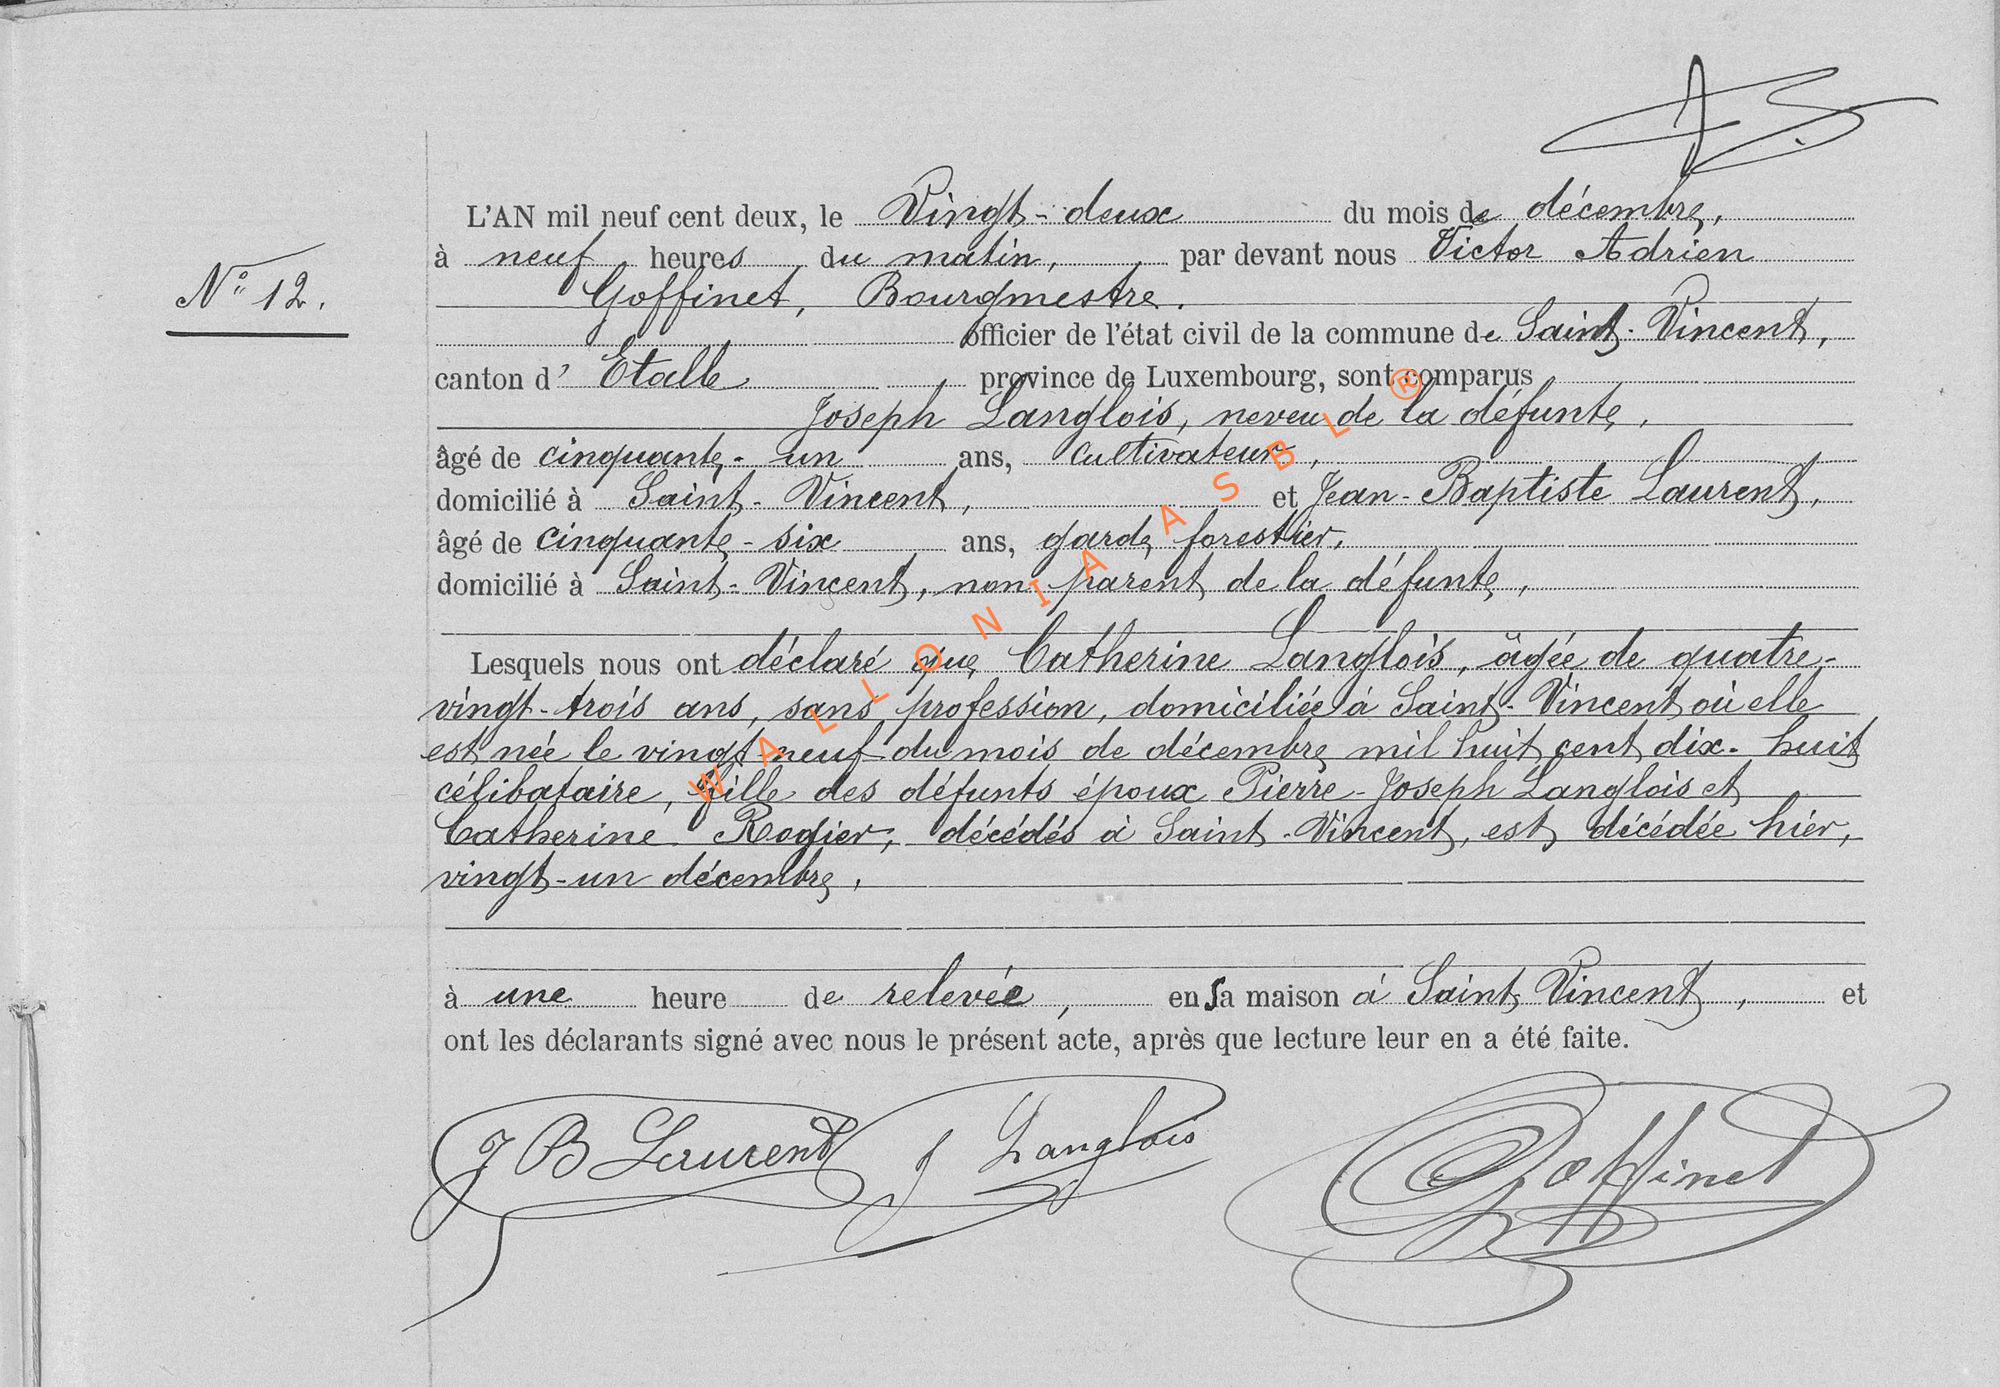 L'AN mil neuf cent deux, le Vingt-deux du mois de décembre,
à neuf heures du matin, par devant nous Victor Adrien
N° 12.
Goffinet, Bourgmestre.
officier de l'état civil de la commune de Saint-Vincent,
canton d' Etalle province de Luxembourg, sont comparus
Joseph Langlois, neveu de la défunte,
âgé de cinquante-un ans, cultivateur,
domicilié à Saint-Vincent, et Jean-Baptiste Laurent,
âgé de cinquante-six ans, garde forestier,
domicilié à Saint-Vincent, non parent de la défunte,
Lesquels nous ont déclaré que Catherine Langlois, âgée de quatre-
vingt-trois ans, sans profession, domiciliée à Saint-Vincent où elle
est née le vingt-neuf du mois de décembre mil huit cent dix-huit
célibataire, fille des défunts époux Pierre-Joseph Langlois et
Catherine Rogier, décédés à Saint-Vincent, est décédée hier,
vingt-un décembre,
à une heure de relevée, en sa maison à Saint-Vincent, et
ont les déclarants signé avec nous le présent acte, après que lecture leur en a été faite.
J B Laurent J Langlois Goffinet
WALLONIA ASBL ®